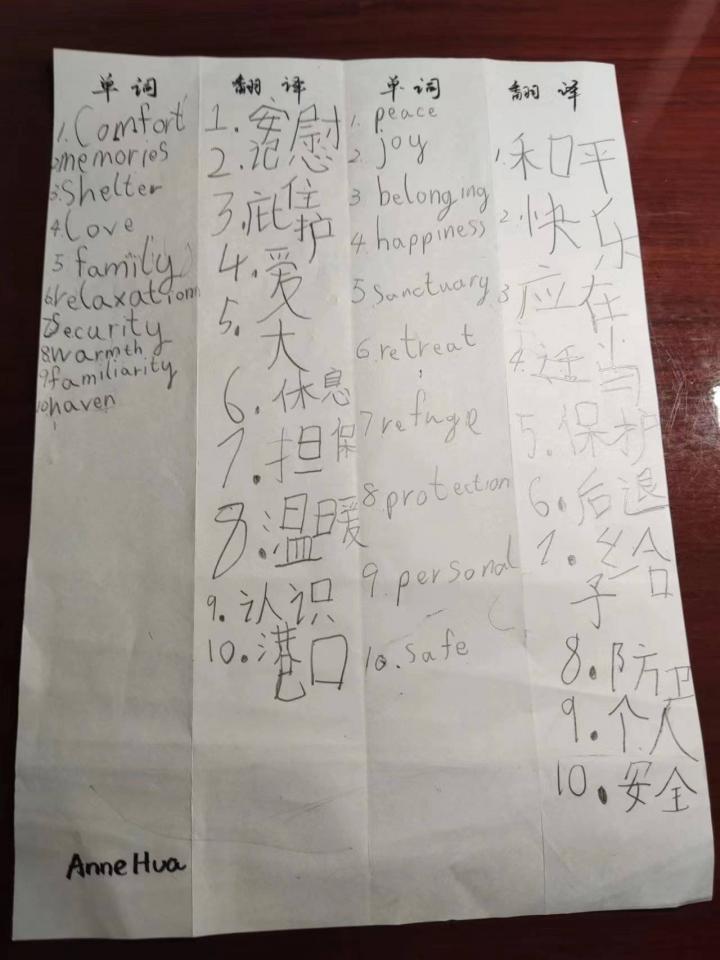 单词
1. Comfort
2. memories
3. Shelter
4. Love
5 family
6. relaxation
7. Security
8. warmth
9. familiarity
10. haven
Anne Hua
翻译
1. 安慰
2. 记忆
3. 庇护
住
4. 爱
5.
大
6. 休息
7. 担保
8. 温暖
9. 认识
10. 港口
单词
1. peace
2. joy
3 belonging
4 happiness
5 Sanctuary
6. retreat
7 refuge
8. protection
9. personal
10. Safe
翻译
1. 和平
2. 快乐
3 应在
4. 适当
5. 保护
6. 后退
7. 给
予
8. 防卫
9. 个人
10. 安全